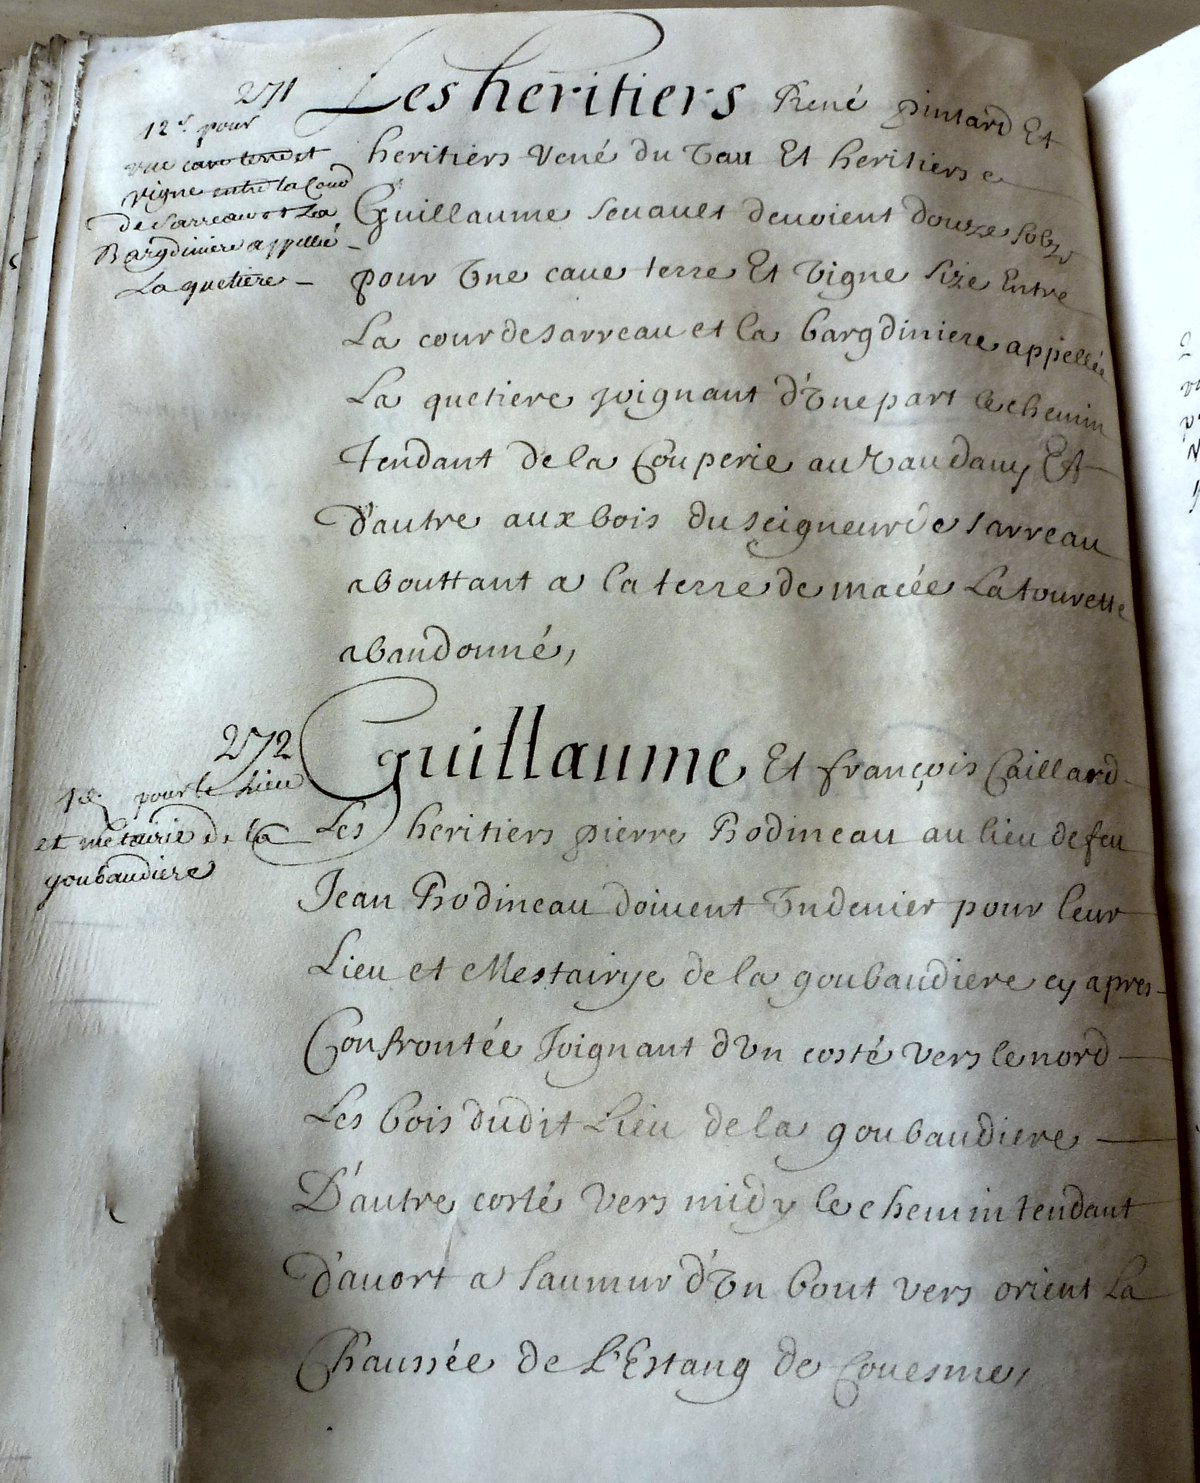 271
12s pour
une cave terre et
vigne entre la Cour
de Sarreau et La
Bargdiniere appellée
La quetiere
Les heritiers René pintard Et
heritiers René du Vau Et heritiers
Guillaume Seuault deuoient douze solz
pour Une caue terre Et Vigne size Entre
La cour de sarreau et la bargdiniere appellée
La quetiere joignant d'Une part le chemin
tendant de la Couperie au Vaudany Et
d'autre aux bois du seigneur de sarreau
abouttant a la terre de macée La tourette
abandonné,
272
1d. pour le Lieu
et métairie de la
goubaudiere
Guillaume Et françois Caillard
Les heritiers pierre Bodineau au lieu de feu
Jean Bodineau doiuent Un denier pour leur
Lieu et Mestairye de la goubaudiere cy apres
Confrontée Joignant d'Un costé vers le nord
Les bois dudit Lieu de la goubaudiere
D'autre costé Vers midy le chemin tendant
d'auort a saumur d'Un bout vers orient La
Chaussée de L'Estang de Couesme,